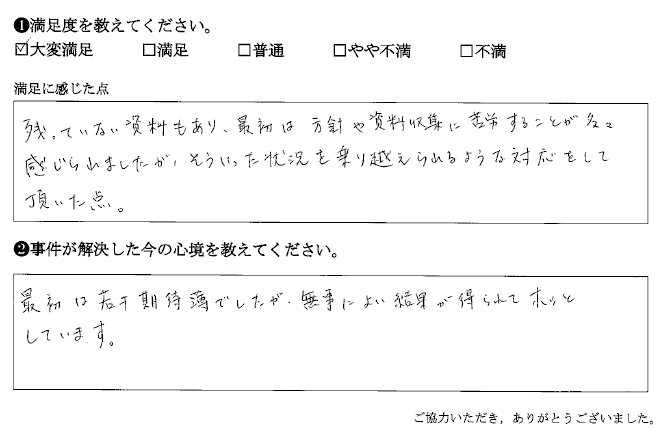 ❶満足度を教えてください。
☑大変満足 □満足 □普通 □やや不満 □不満
満足に感じた点
残っていない資料もあり、最初は方針や資料収集に苦労することが多々
感じられましたが、そういった状況を乗り越えられるような対応をして
頂いた点。
❷事件が解決した今の心境を教えてください。
最初は若干期待薄でしたが、無事によい結果が得られてホッと
しています。
ご協力いただき，ありがとうございました。